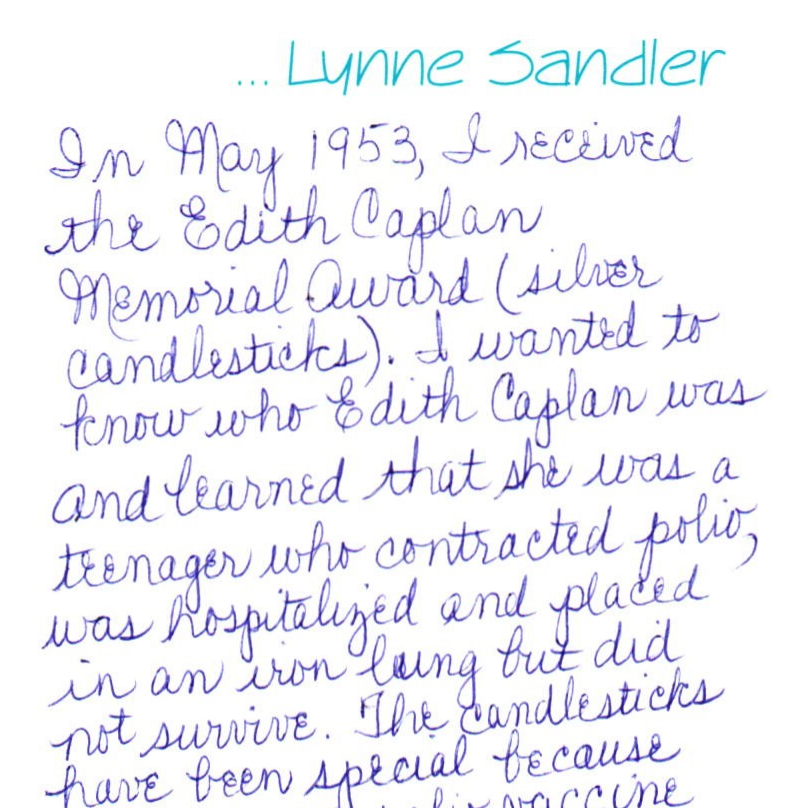 ... Lynne Sandler
In May 1953, I received
the Edith Caplan
Memorial Award (silver
candlesticks). I wanted to
know who Edith Caplan was
and learned that she was a
teenager who contracted polio,
was hospitalized and placed
in an iron lung but did
not survive. The candlesticks
have been special because
vaccine